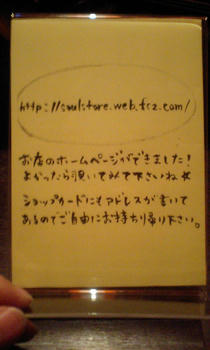 http://soulstore.web.fc2.com/
お店のホームページができました!
よかったら覗いてみて下さいね☆
ショップカードにもアドレスが書いて
あるのでご自由にお持ち帰り下さい。